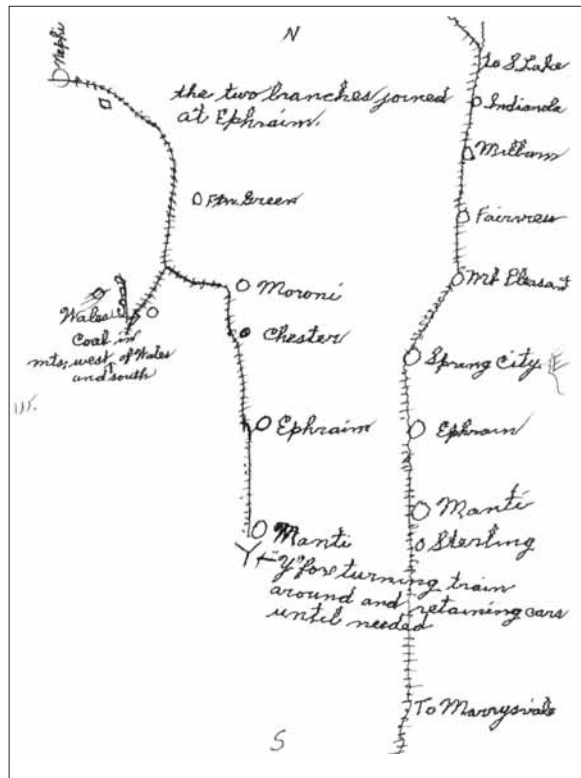 N
Nephi
the two branches joined
at Ephraim.
to S Lake
Indianola
Milburn
Ftn Green
Fairview
Mt Pleasant
Moroni
Wales
Coal
Coal in
mts, west of Wales
and south
Chester
Spring City
E
W.
Ephraim
Ephraim
Manti
Manti
Sterling
"Y" for turning train
around and retaining cars
until needed
To Marrysvale
S